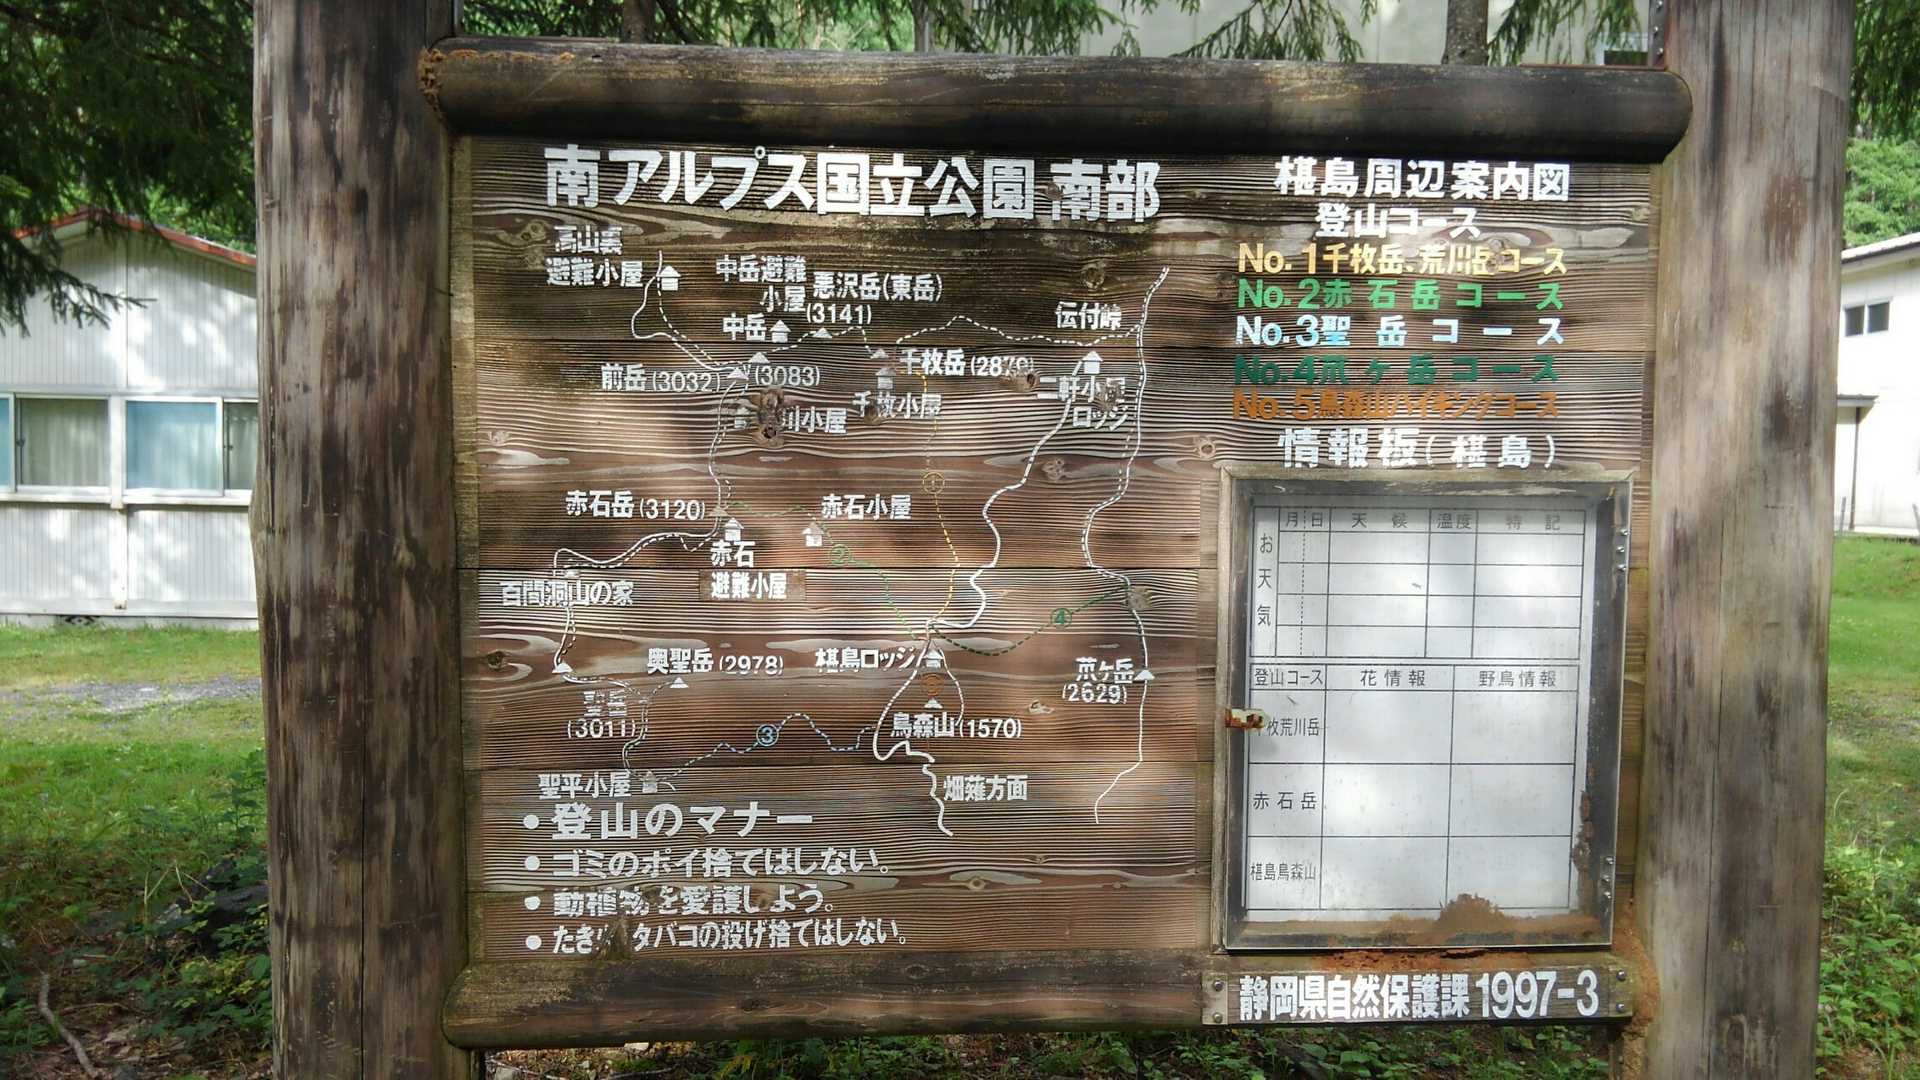 南アルプス国立公園 南部
椹島周辺案内図
登山コース
No.1千枚岳、荒川岳コース
No.2赤石岳コース
No.3聖岳コース
No.4笊ケ岳コース
No.5鳥森山ハイキングコース
情報板(椹島)
高山裏
避難小屋
中岳避難
小屋
悪沢岳(東岳)
(3141)
伝付峠
中岳
(3083)
前岳(3032)
千枚岳
二軒小屋
ロッジ
千枚小屋
川小屋
①
赤石岳(3120)
赤石小屋
赤石
避難小屋
②
百間洞山の家
④
奥聖岳(2978)
椹島ロッジ
笊ケ岳
(2629)
聖岳
(3011)
③
鳥森山(1570)
聖平小屋
畑薙方面
•登山のマナー
•ゴミのポイ捨てはしない。
•動植物を愛護しよう。
•たき タバコの投げ捨てはしない。
月 日 天候 温度 特記
お天気
登山コース 花情報 野鳥情報
枚荒川岳
赤石岳
椹島鳥森山
静岡県自然保護課 1997-3